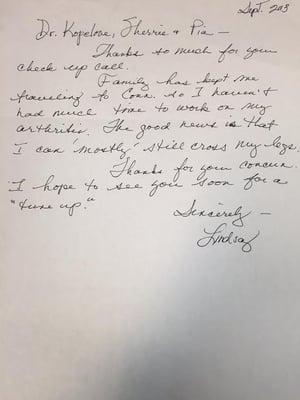 Sept. 203
Dr. Kopelove, Sherrie & Pia -
Thanks so much for your
check up call.
Family has kept me
traveling to Conn. so I haven't
had much time to work on my
arthritis. The good news is that
I can 'mostly' still cross my legs.
Thanks for your concern.
I hope to see you soon for a
"tune up."
Sincerely -
Lindsay